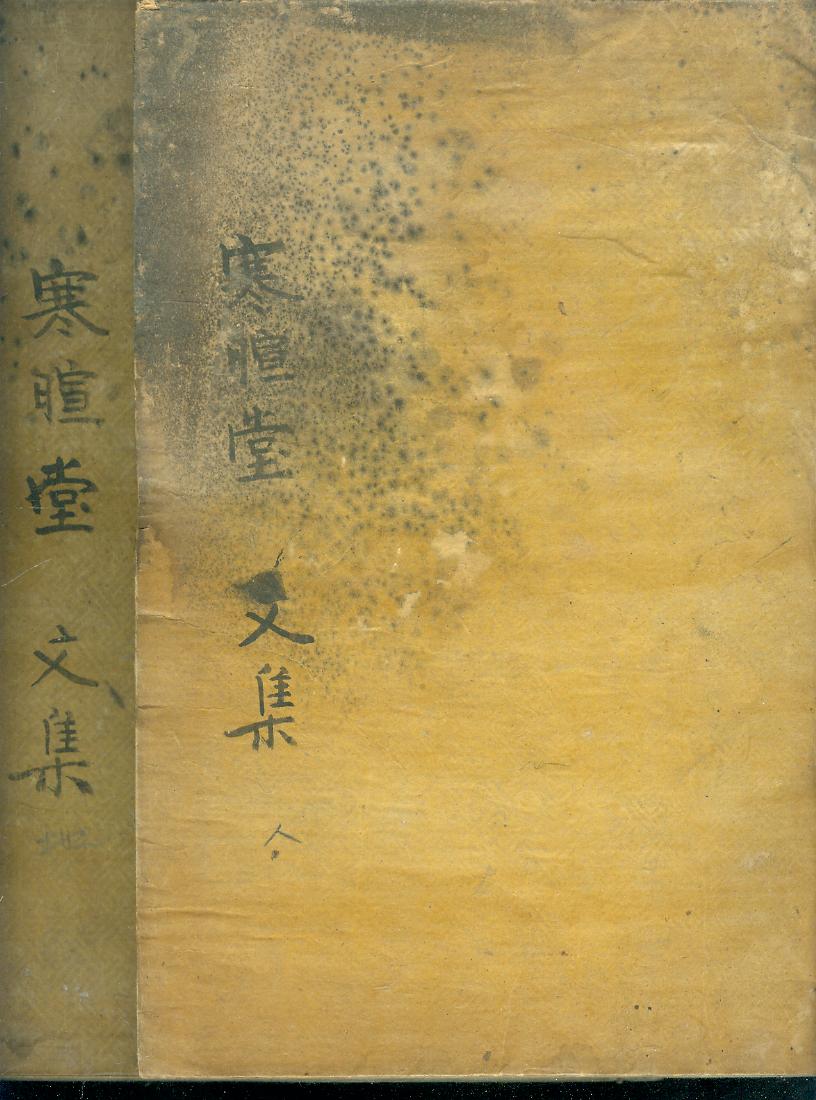 寒暄堂 文集 人
寒暄堂 文集 地